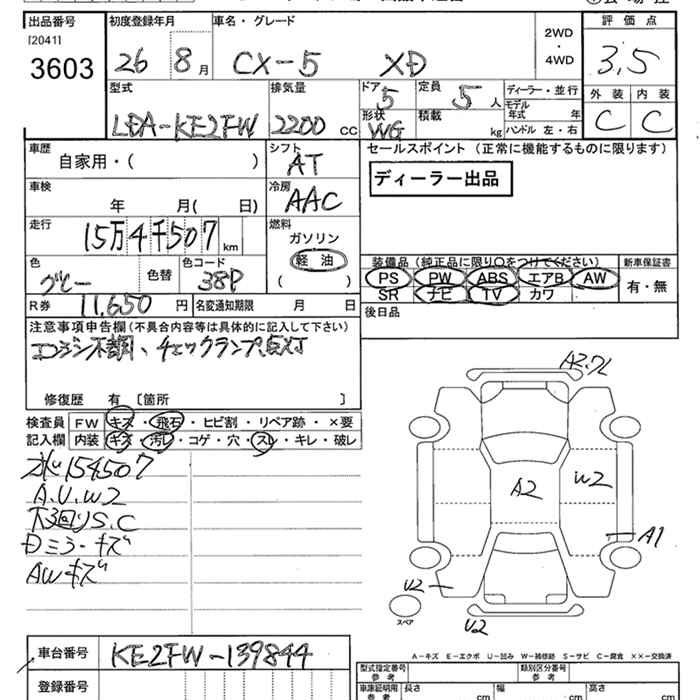 出品番号
[2041]
3603
初度登録年月
26 8月
車名・グレード
CX-5 XD
2WD
・
4WD
評価点
3,5
外装 内装
C C
型式
LDA-KE2FW
排気量
2200 cc
ドア
5
形状
WG
定員
5 人
積載
kg
ディーラー・並行
モデル
年式 年
ハンドル 左・右
車歴
自家用・( )
シフト
AT
車検
年 月( 日)
冷房
AAC
走行
15万4千507 km
燃料
ガソリン
軽油
( )
色
グレー
色替
色コード
38P
R券 11,650 円
名変通知期限 月 日
セールスポイント(正常に機能するものに限ります)
ディーラー出品
装備品(純正品に限り○をつけてください)
PS PW ABS エアB AW
SR ナビ TV カワ
新車保証書
有・無
後日品
注意事項申告欄(不具合内容等は具体的に記入して下さい)
エンジン不調、チェックランプ点灯
修復歴 有 [箇所 ]
検査員
記入欄
FW キズ・飛石・ヒビ割・リペア跡・×要
内装 キズ・汚レ・コゲ・穴・スレ・キレ・破レ
154507
A.U.W2
下回りS.C
Dミラーキズ
AWキズ
A2
W2
A1
U2
U2
スペア
車台番号
KE2FW-139844
登録番号
A-キズ E-エクボ U-凹み W-補修跡 S-サビ C-腐食 ××-交換済
型式指定番号
参考
類別区分番号
参考
車庫証明用
参考
長さ cm
幅 cm
高さ cm